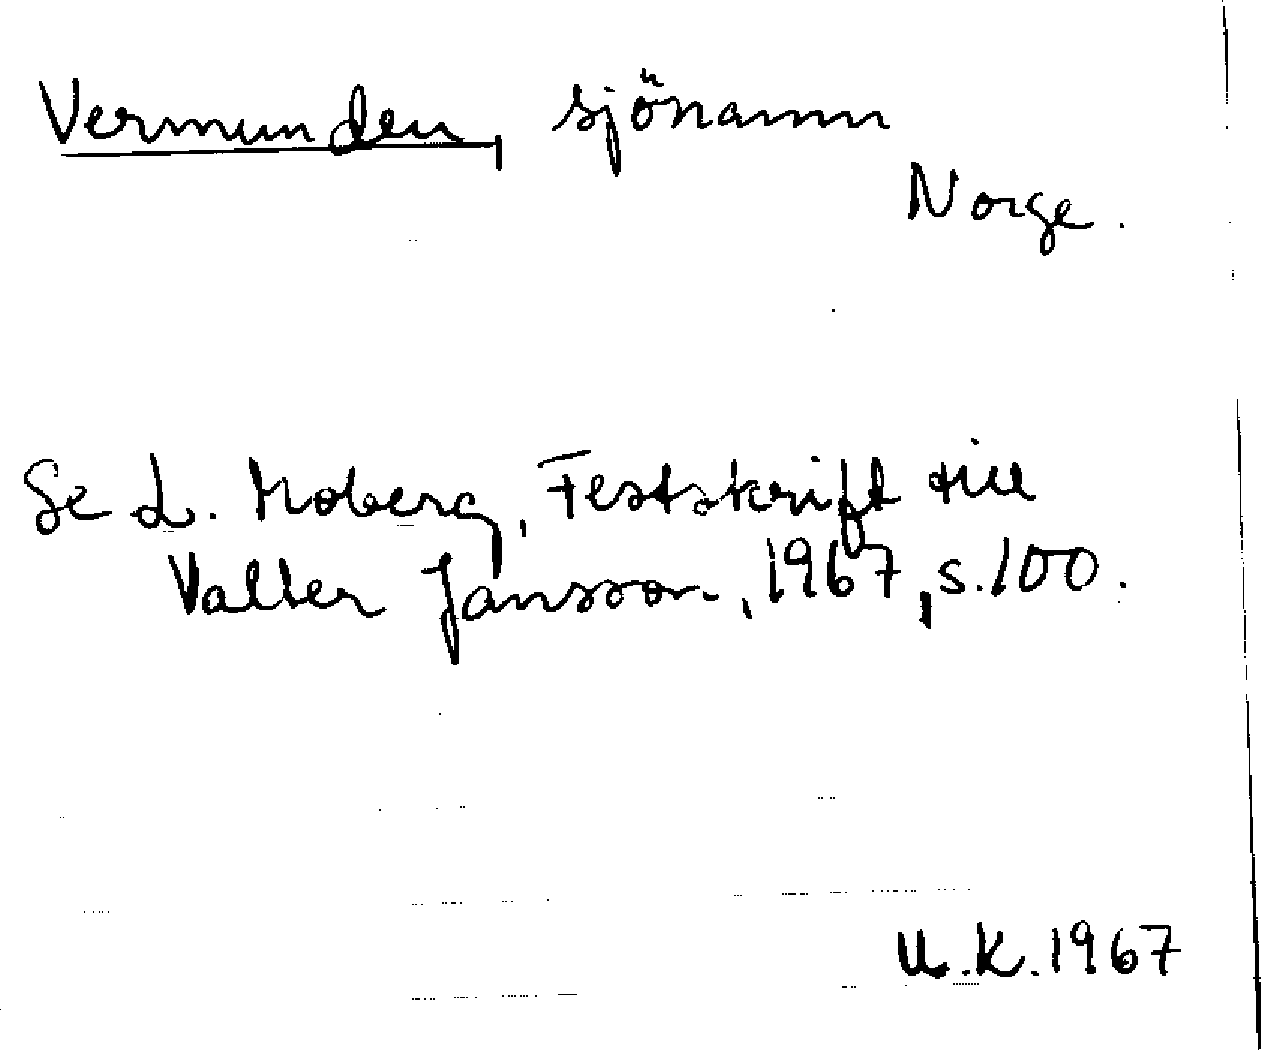 Vermunden, sjönamn
Norge.
Se L. Moberg, Festskrift till
Valter Jansson, 1967, s. 100.
U.K. 1967